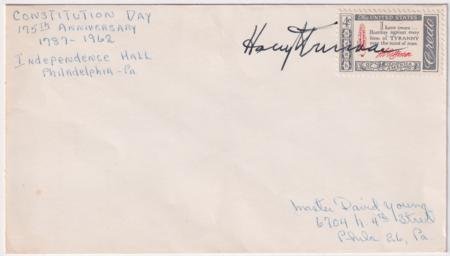 CONSTITUTION DAY
175TH ANNIVERSARY
1787-1962
INDEPENDENCE HALL
PHILADELPHIA-Pa
Harry Truman
UNITED STATES
4¢
I have sworn...
Hostility against every
form of TYRANNY
over the mind of man.
Th Jefferson
Credo
OF AMERICA
Master David Young
6704 N. 4th Street
Phila 26, Pa